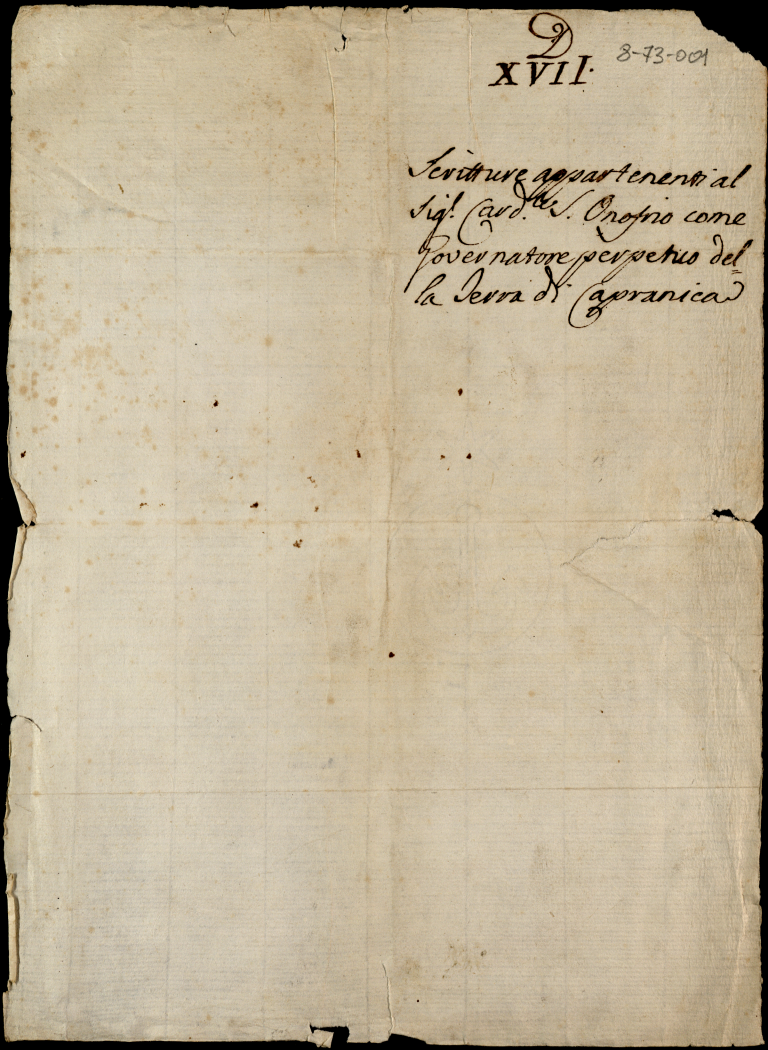 D
XVII.
8-73-001
Scritture appartenenti al
Sig.r Card.le S. Onofrio come
Governatore perpetuo del=
la Terra di Capranica